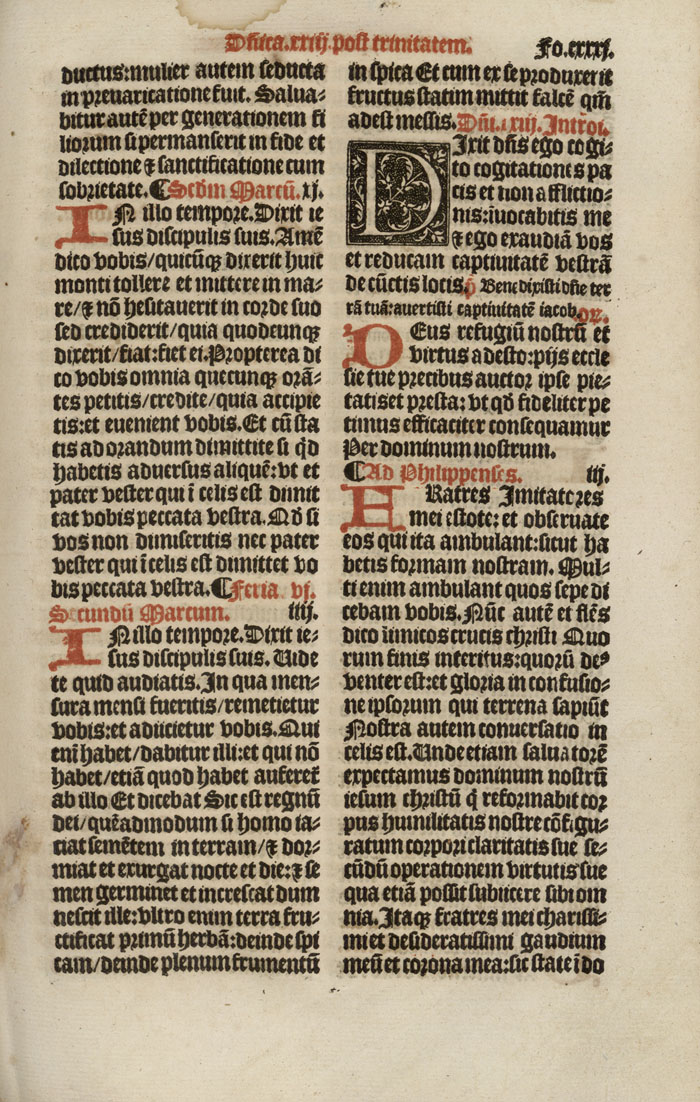 Dñica.xxiij.post trinitatem.
Fo.cxxxj.
ductus:mulier autem seducta
in preuaricatione fuit. Salua⸗
bitur autē per generationem fi
liorum si permanserit in fide et
dilectione ⁊ sanctificatione cum
sobrietate. ¶Scd̄m Marcū.xj.
IN illo tempore.Dixit ie
sus discipulis suis.Amē
dico vobis/quicūqꝫ dixerit huic
monti tollere et mittere in ma⸗
re/⁊ nō hesitauerit in corde suo
sed crediderit/quia quodcunqꝫ
dixerit/fiat:fiet ei.Propterea di
co vobis omnia quecunqꝫ orā⸗
tes petitis/credite/quia accipie
tis:et euenient vobis.Et cū sta
tis ad orandum dimittite si qd̄
habetis aduersus aliquē:vt et
pater vester qui ī celis est dimit
tat vobis peccata vestra.Qd̄ si
vos non dimiseritis nec pater
vester qui ī celis est dimittet vo
bis peccata vestra.¶Feria vj.
Secundū Marcum. iiij.
IN illo tempore.Dixit ie⸗
sus discipulis suis. Uide
te quid audiatis.In qua men⸗
sura mensi fueritis/remetietur
vobis:et adiicietur vobis.Qui
enī habet/dabitur illi:et qui nō
habet/etiā quod habet auferet̄
ab illo Et dicebat Sic est regnū
dei/quēadmodum si homo ia⸗
ciat semētem in terram/⁊ dor⸗
miat et exurgat nocte et die:⁊ se
men germinet et increscat dum
nescit ille:vltro enim terra fru⸗
ctificat primū herbā:deinde spi
cam/deinde plenum frumentū
in spica Et cum ex se produxerit
fructus statim mittit falcē qm̄
adest messis.Dñi.xxiij.Introi.
DIxit dn̄s ego cogi⸗
to cogitationes pa
cis et non afflictio⸗
nis:īuocabitis me
⁊ ego exaudiā vos
et reducam captiuitatē vestrā
de cūctis locis.p̄ Benedixisti dn̄e ter
rā tuā:auertisti captiuitatē iacob.or.
DEus refugiū nostrū et
virtus adesto:pijs eccle
sie tue precibus auctor ipse pie⸗
tatis et presta:vt qd̄ fideliter pe
timus efficaciter consequamur
Per dominum nostrum.
¶Ad Philippenses. iij.
FRatres Imitatores
mei estote: et obseruate
eos qui ita ambulant:sicut ha
betis formam nostram. Mul⸗
ti enim ambulant quos sepe di
cebam vobis. Nūc autē et flēs
dico īimicos crucis christi Quo
rum finis interitus:quorū deꝰ
venter est:et gloria in confusio⸗
ne ipsorum qui terrena sapiūt
Nostra autem conuersatio in
celis est.Unde etiam saluatorē
expectamus dominum nostrū
iesum christū q̄ reformabit cor
pus humilitatis nostre cōfigu⸗
ratum corpori claritatis sue se⸗
cūdū operationem virtutis sue
qua etiā possit subiicere sibi om
nia.Itaqꝫ fratres mei charissi⸗
mi et desideratissimi gaudium
meū et corona mea:sic state ī do